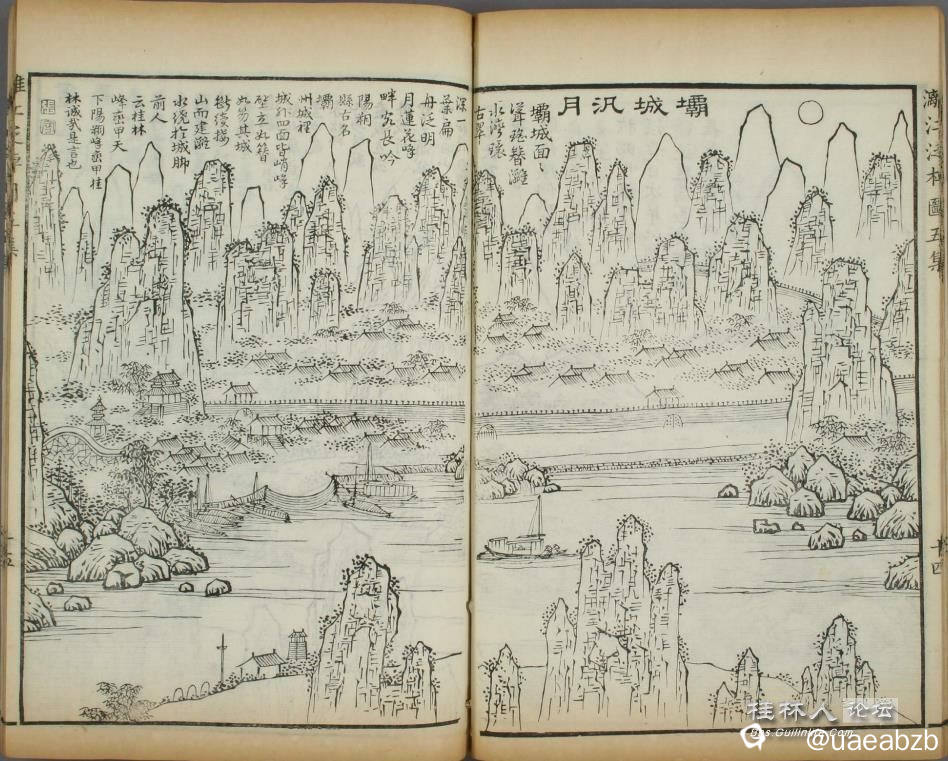 漓江泛棹圖五集
壩城汎月
壩城面〻
聳瑤簪灕
水灣環
古翠
深一
葉扁
舟泛明
月蓮花峰
畔 長吟
陽朔
縣古名
壩
州城裡
城外四面皆峭峰
壁立如簪
如笏其城
山而建灕
水繞於城腳
前人
云桂林
峰巒甲天
下陽朔峰巒甲桂
林誠哉是言也
十四
桂林人论坛
bbs.GuilinLife.Com
@uaeabzb